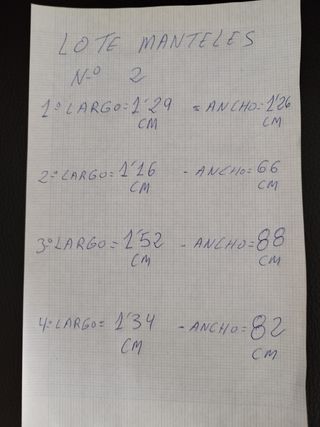 LOTE MANTELES
Nº 2
1º LARGO=1'29 = ANCHO=1'26
CM CM
2º LARGO=1'16 - ANCHO=66
CM CM
3º LARGO=1'52 - ANCHO=88
CM CM
4º LARGO=1'34 - ANCHO=82
CM CM